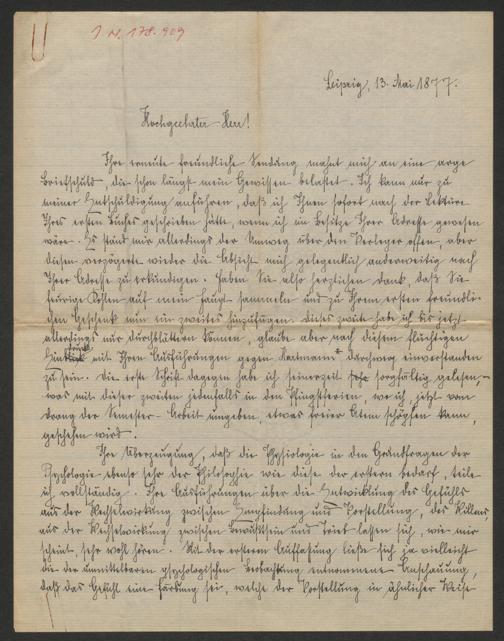 J. N. 178.909
Leipzig, 13. Mai 1877.
Hochgeehrter Herr!
Ihre erneute freundliche Sendung mahnt mich an eine arge
Briefschuld, die schon längst mein Gewissen belastet. Ich kann nur zu
meiner Entschuldigung anführen, daß ich Ihnen sofort nach der Lektüre
Ihres ersten Buches geschrieben hätte, wenn ich im Besitze Ihrer Adresse gewesen
wäre. Es stand mir allerdings der Umweg über den Verleger offen, aber
diesen verzögerte wieder die Absicht mich gelegentlich anderweitig nach
Ihrer Adresse zu erkundigen. Haben Sie also herzlichen Dank, daß Sie
feurige Kohlen auf mein Haupt sammeln und zu Ihrem ersten freundli-
chen Geschenk nun ein zweites hinzufügen. Dieses zweite habe ich bis jetzt
allerdings nur durchblättern können, glaube aber nach diesem flüchtigen
Eindruck mit Ihren Ausführungen gegen Hartmann durchweg einverstanden
zu sein. Die erste Schrift dagegen habe ich seinerzeit sorgfältig gelesen,
was mit dieser zweiten jedenfalls in den Pfingstferien, wo ich, jetzt vom
Drang der Semester-Arbeit umgeben, etwas freier Atem schöpfen kann,
geschehen wird.
Ihre Überzeugung, daß die Physiologie in den Grundfragen der
Psychologie ebenso sehr der Philosophie wie diese der erstern bedarf, teile
ich vollständig. Ihre Ausführungen über die Entwicklung des Gefühls
aus der Wechselwirkung zwischen Empfindung und Vorstellung, des Willens
aus der Wechselwirkung zwischen Bewußtsein und Trieb lassen sich, wie mir
scheint, sehr wohl hören. Mit der ersteren Auffassung ließe sich ja vielleicht
die der unmittelbaren psychologischen Beobachtung entnommene Anschauung,
daß das Gefühl eine Färbung sei, welche der Vorstellung in ähnlicher Weise